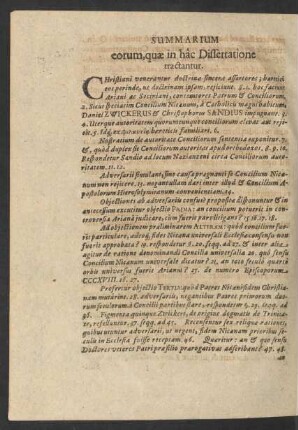 SUMMARIUM
eorum, quæ in hâc Dissertatione
tractantur.
Christiani venerantur doctrinæ sinceræ assertores;
eos perinde, ac doctrinam ipsam, rejiciunt. §.1. hoc faciunt
Ariani ac Sociniani, contemtores Patrum & Conciliorum.
2. Sicut speciatim Concilium Nicænum, à Catholicis magni habitum,
Daniel ZWICKERUS & Christophorus SANDIUS impugnant. 3.
4. Uterque autoritatem quorumcunque conciliorum elevat aut
rejicit. 5. sed, hæreticis familiari. 6.
Nostratium de autoritate Conciliorum sententia exponitur. 7.
&, quod duplex sit Conciliorum autoritas, 8. 9. 10.
Respondetur Sandio ad locum Nazianzeni circa Conciliorum auto-
ritatem. 11. 12.
Adversarii simulant, sine causa prægnanti se Concilium Nicæ-
num non rejicere. 13. negant illam dari inter id & Concilium A-
postolorum Hierosolymitanum convenientiam. 14.
Objectiones ab adversariis confutè propositæ disponuntur & in
antecessum excutitur objectio PRIMA: an concilium potuerit in con-
troversia Ariana judicare, cùm fuerit pars litigans? 15. 16. 17. 18.
Ad objectionem præliminarem ALTERAM: quod concilium fue-
rit particulare, adeoq; fides Nicæna universali Ecclesiæ consensu non
fuerit approbata? 19. respondetur §. 20. seqq. ad 27. & inter alia
agitur de ratione denominandi Concilia universalia 20. quo sensu
Concilium Nicænum universale dicatur? 21. an toto seculo quarto
orbis universus fuerit Arianus? 25. de numero Episcoporum
CCCXVIII. 26. 27.
Profertur objectio TERTIA: quòd Patres Nicæni fidem Christia-
nam mutârint. 28. Adversarii, negantibus Patres primorum
seculorum à Concilii partibus stare, respondetur. §. 29. seqq. ad
36. Figmenta quinque Zwickeri, de origine dogmatis de Trinita-
te, refelluntur, 37. seqq. ad 45. Recensentur sex reliquæ rationes,
quibus nituntur adversarii, ut negent, fidem Nicænam prioribus se-
culis in Ecclesia fuisse receptam. 46. Quæritur: an & quo sensu
Doctores veteres Patri præ filio prærogativas adscribant? 47. 48.